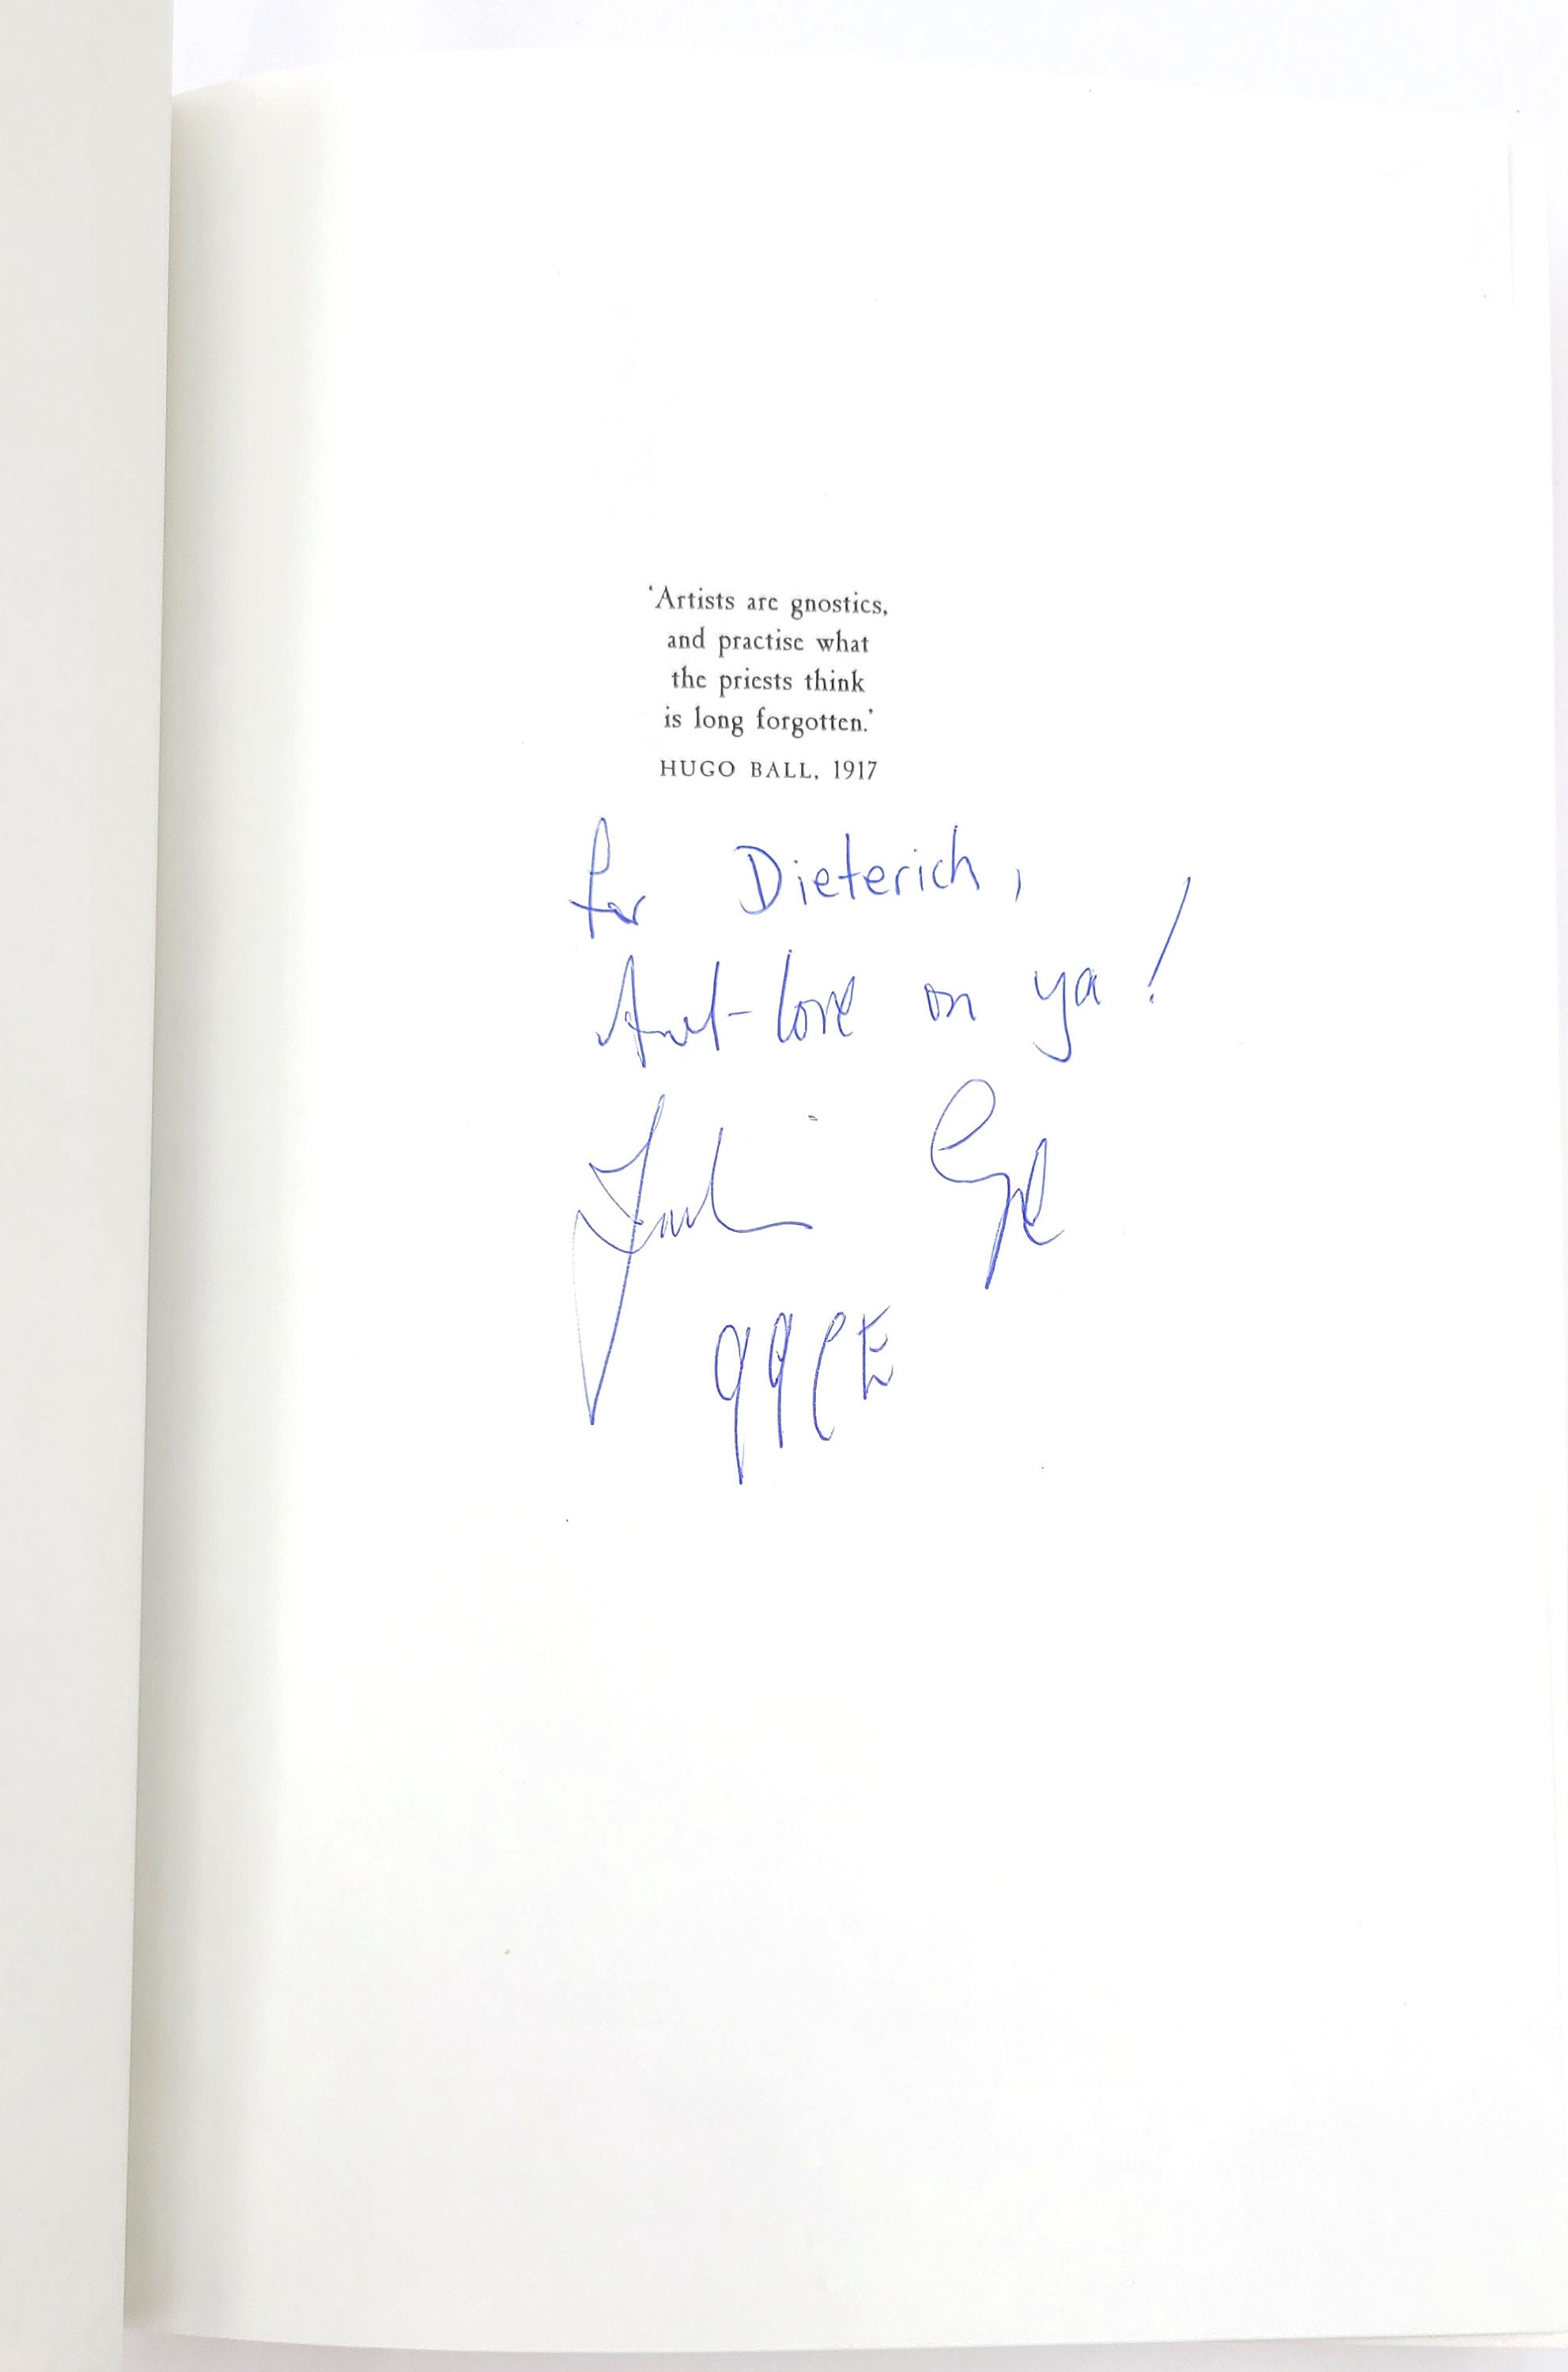 ‘Artists are gnostics,
and practise what
the priests think
is long forgotten.’
HUGO BALL, 1917
for Dieterich,
love on ya!